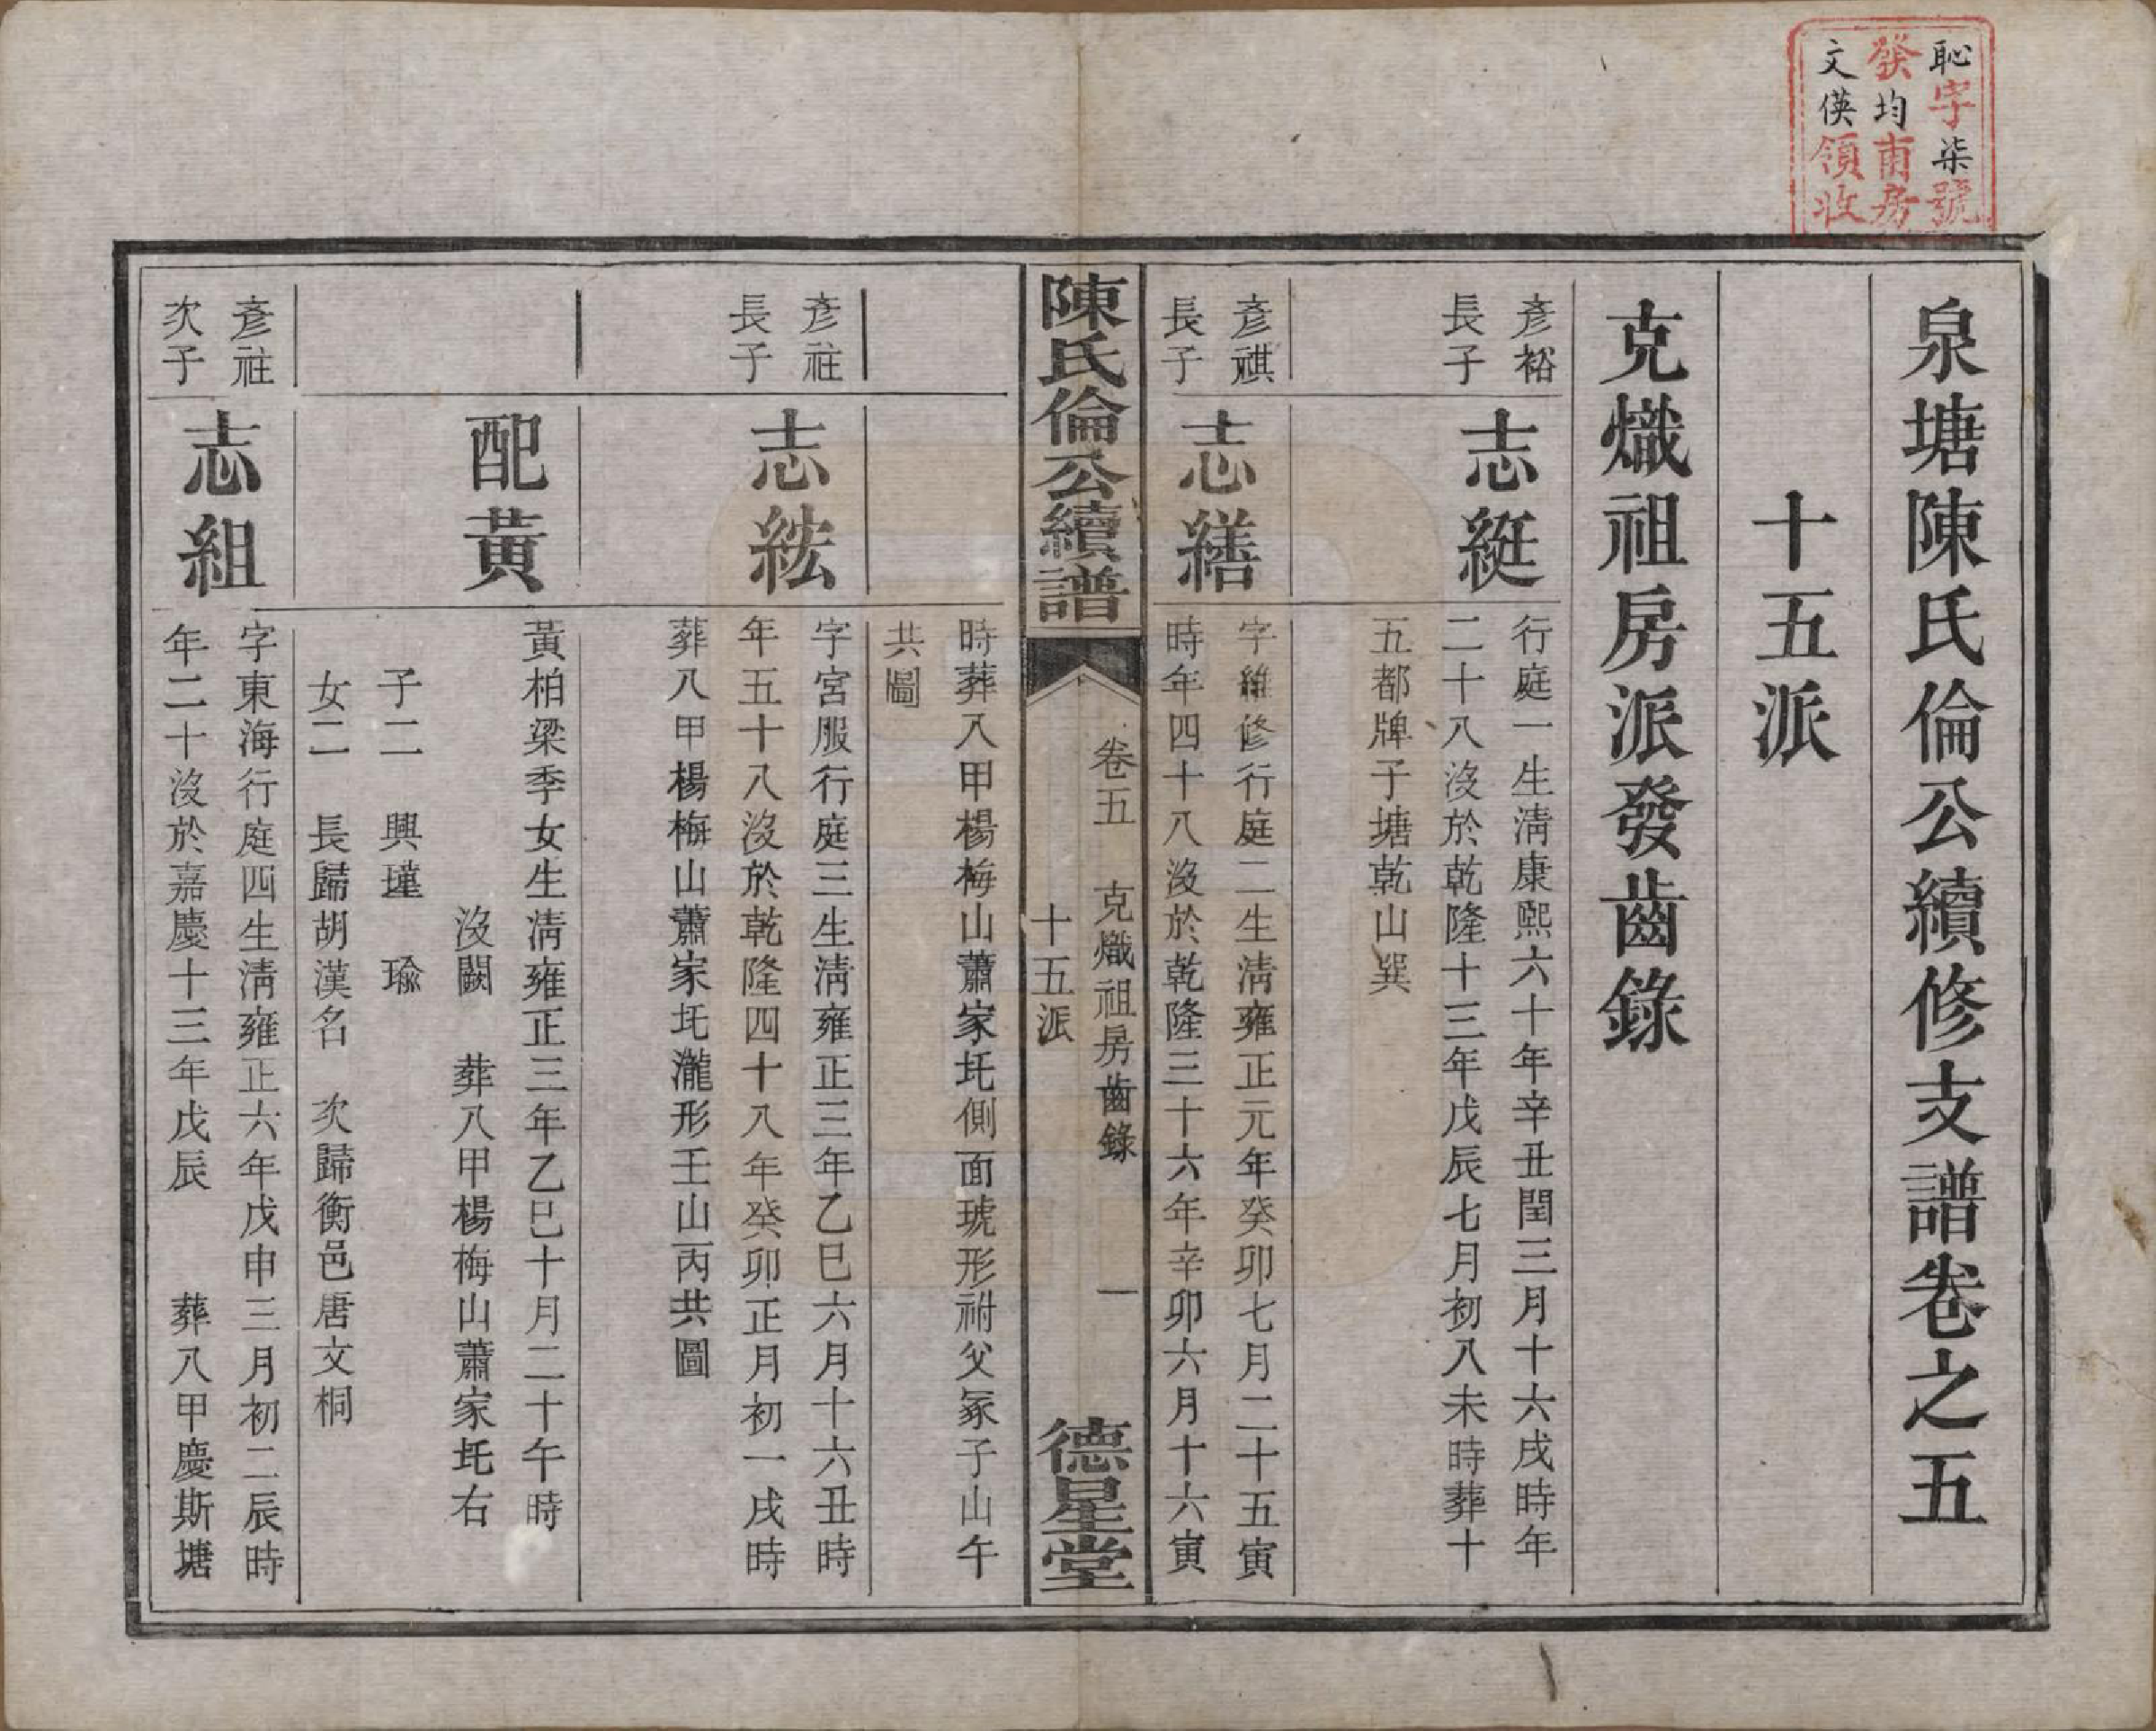 恥字柒號
發均甫房
文偀領收
泉塘陳氏倫公續修支譜卷之五
十五派
克熾祖房派發齒錄
彥裕
長子
志綎
行庭一生淸康熙六十年辛丑閏三月十六戌時年
二十八沒於乾隆十三年戊辰七月初八未時葬十
五都牌子塘乾山巽
彥祺
長子
志繕
字維修行庭二生淸雍正元年癸卯七月二十五寅
時年四十八沒於乾隆三十六年辛卯六月十六寅
陳氏倫公續譜
卷五 克熾祖房齒錄 一
十五派
德星堂
時葬八甲楊梅山蕭家圫側面琥形祔父冢子山午
共圖
彥祉
長子
志紘
字宮服行庭三生淸雍正三年乙巳六月十六丑時
年五十八沒於乾隆四十八年癸卯正月初一戌時
葬八甲楊梅山蕭家圫瀧形壬山丙共圖
配黃
黃柏梁季女生淸雍正三年乙巳十月二十午時
沒闕 葬八甲楊梅山蕭家圫右
子二 興瑾 瑜
女二 長歸胡漢名 次歸衡邑唐文桐
彥祉
次子
志組
字東海行庭四生淸雍正六年戊申三月初二辰時
年二十沒於嘉慶十三年戊辰 葬八甲慶斯塘